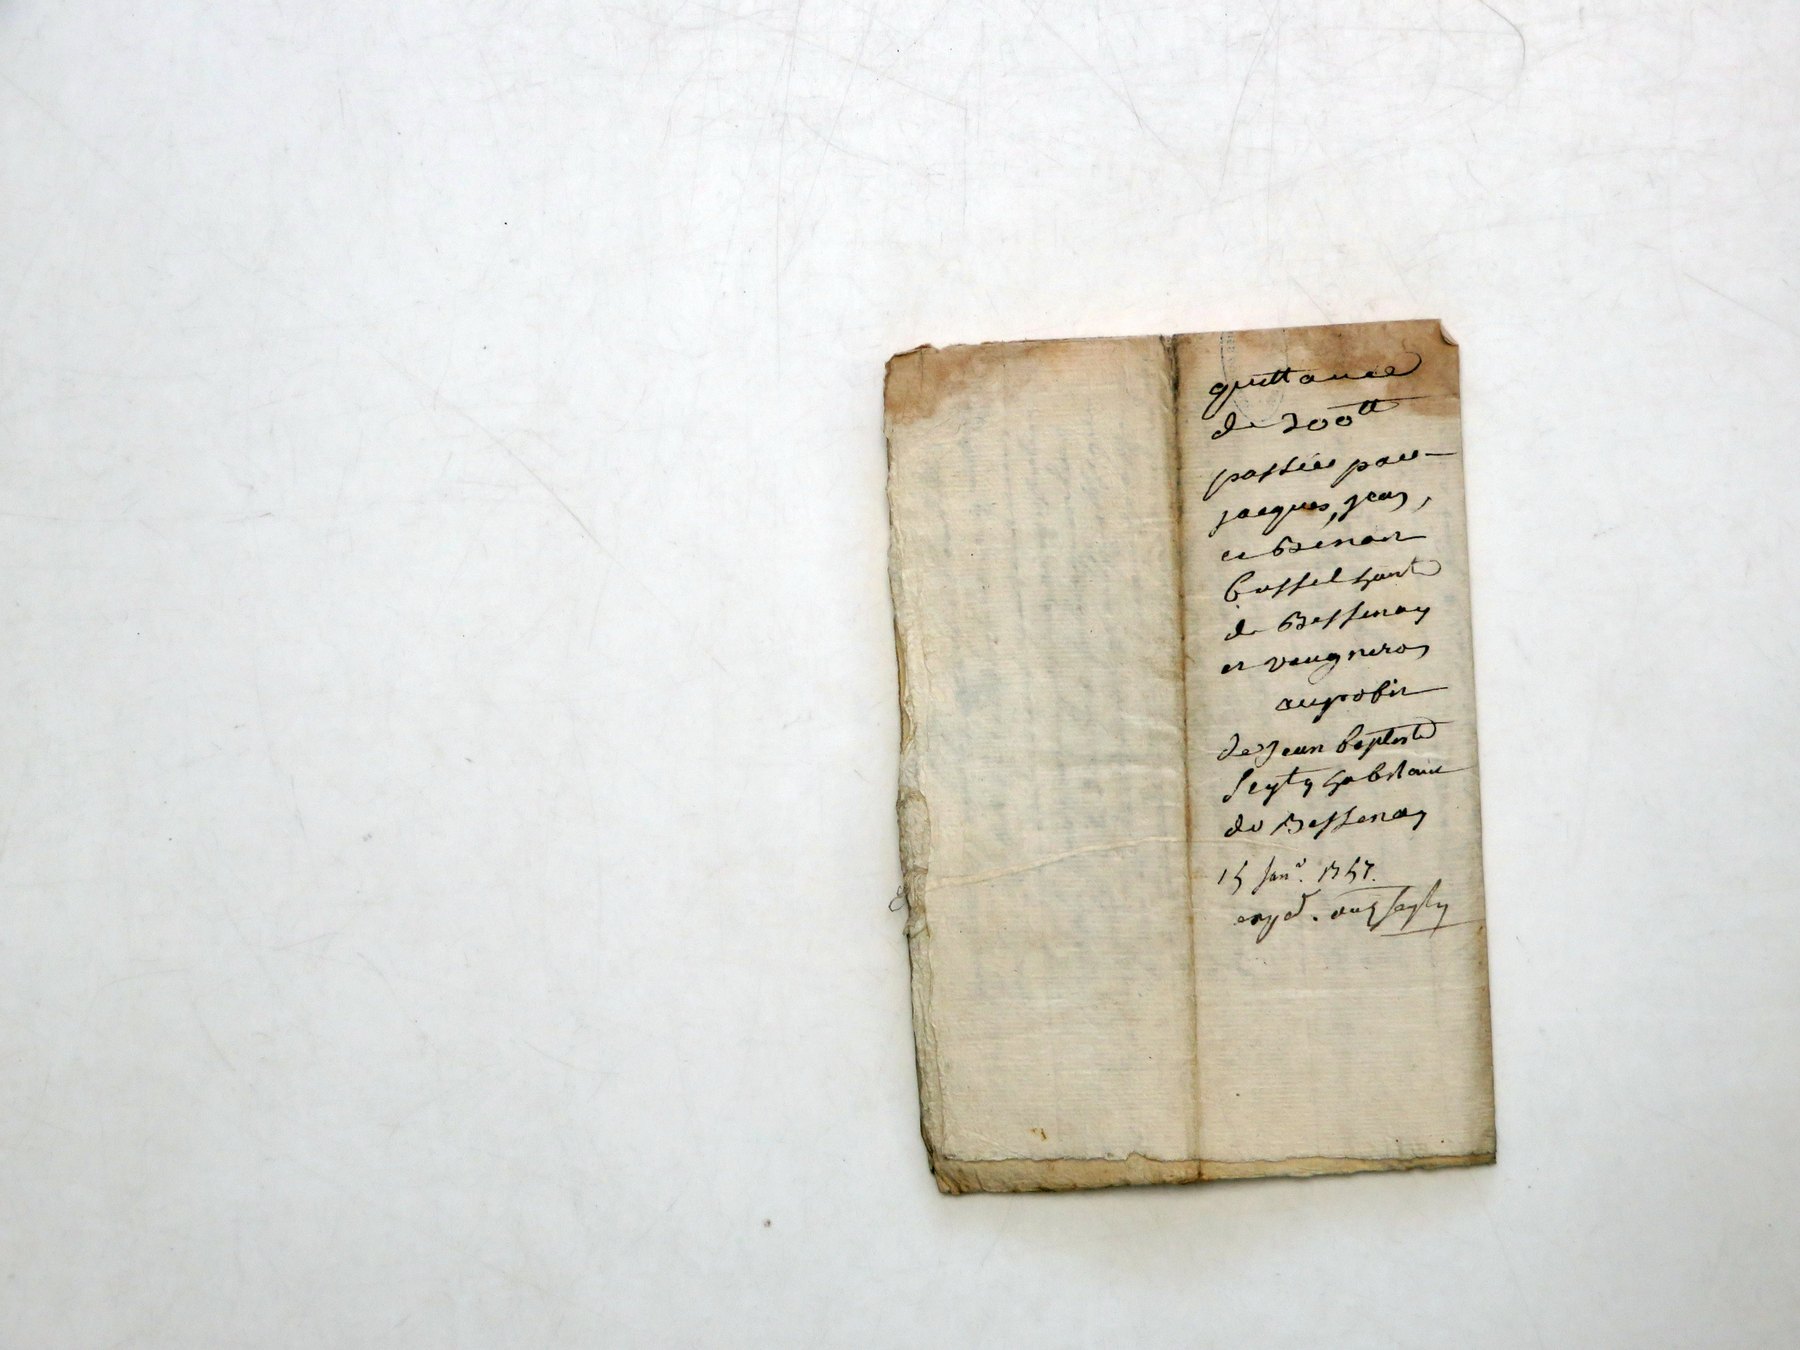 quittance
de 300ᵗᵗ
passée par
jacques, jean,
et Benoit
bussel hant
de Bessenay
et vaugneray
au profit
de Jean baptiste
Seyty habitant
de Bessenay
15 janʳ. 1757.
expᵉᵈ.